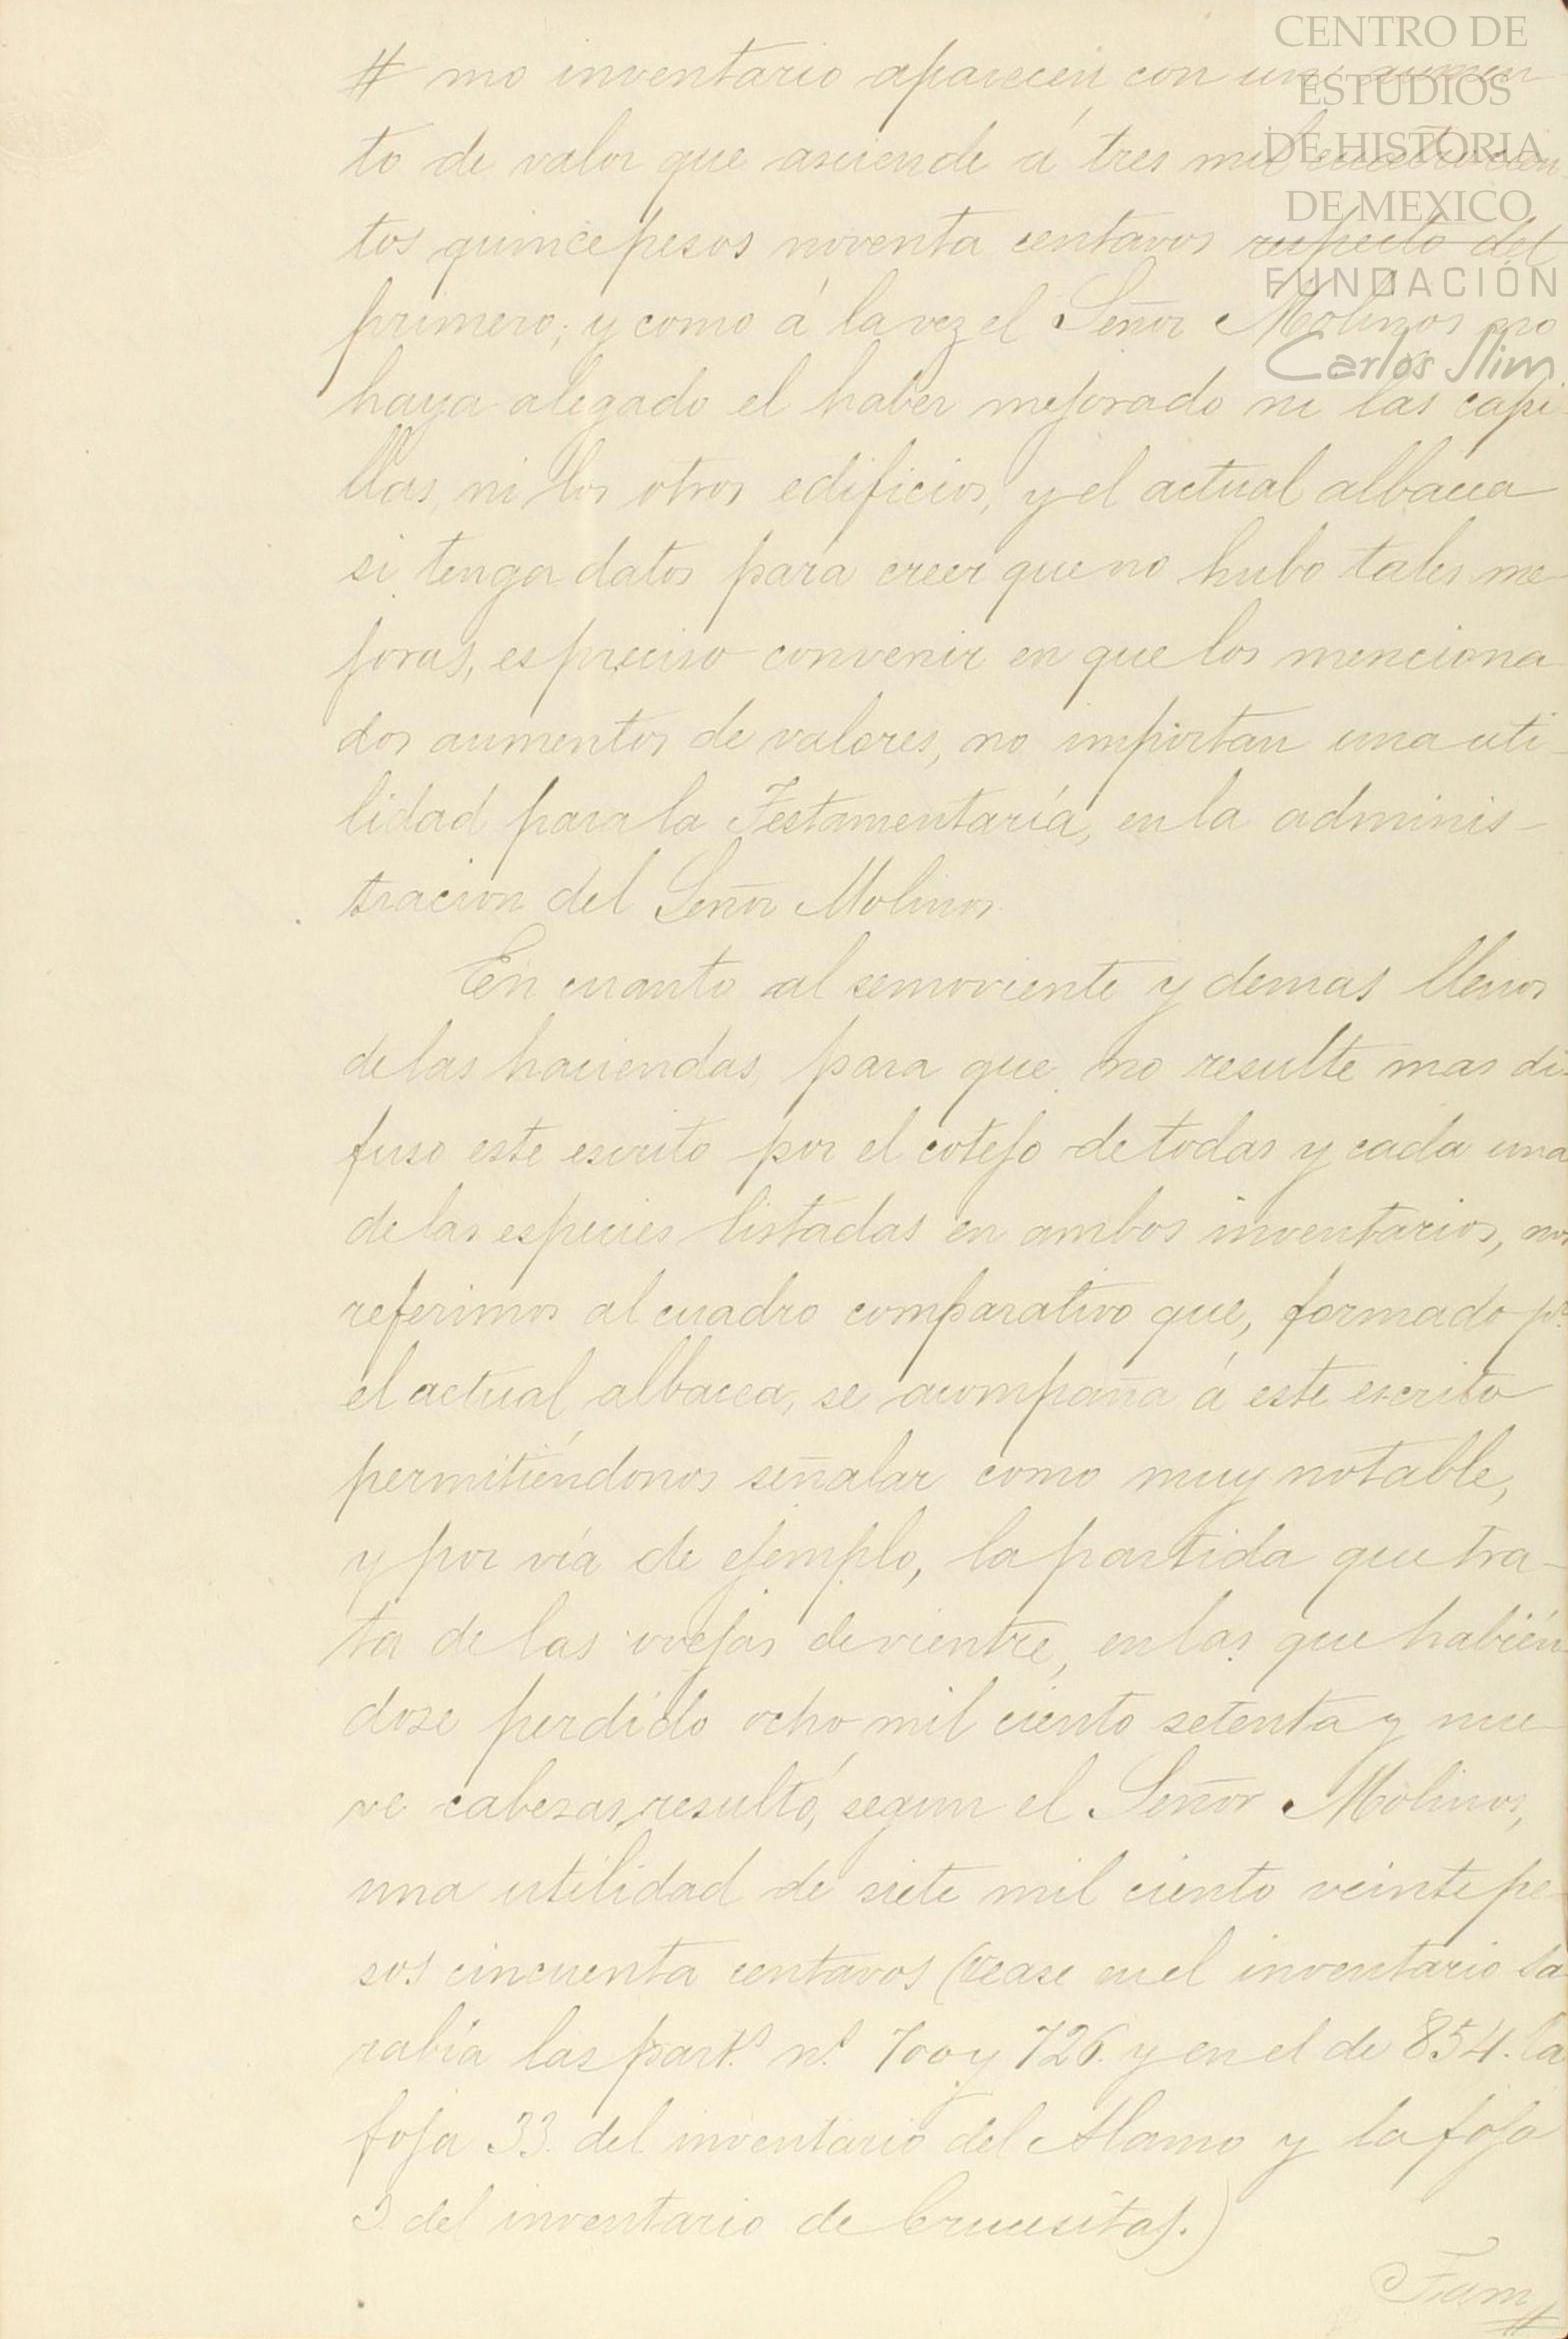 CENTRO DE
ESTUDIOS
DE HISTORIA
DE MEXICO
FUNDACIÓN
Carlos Slim
# mo inventario aparecen con un aumen
to de valor que asciende á tres mil cuatrocien
tos quince pesos noventa centavos respecto del
primero; y como á la vez el Señor Molinos no
haya alegado el haber mejorado ni las capi
llas, ni los otros edificios, y el actual albacea
si tenga datos para creer que no hubo tales me
joras, es preciso convenir en que los menciona
dos aumentos de valores, no importan una uti-
lidad para la Testamentaría, en la adminis-
tracion del Señor Molinos.
En cuanto al semoviente y demas llenos
de las haciendas, para que no resulte mas di-
fuso este escrito por el cotejo de todas y cada una
de las especies listadas en ambos inventarios, nos
referimos al cuadro comparativo que, formado pr.
el actual albacea, se acompaña á este escrito
permitiéndonos señalar como muy notable,
y por vía de ejemplo, la partida que tra-
ta de las ovejas de vientre, en las que habién
dose perdido ocho mil ciento setenta y nue
ve cabezas, resultó, segun el Señor Molinos,
una utilidad de siete mil ciento veinte pe
sos cincuenta centavos (vease en el inventario Sa
rabia las part.s n.s 700 y 726. y en el de 854. la
foja 33. del inventario del Alamo y la foja
3 del inventario de Crucesitas.)
Tam
#